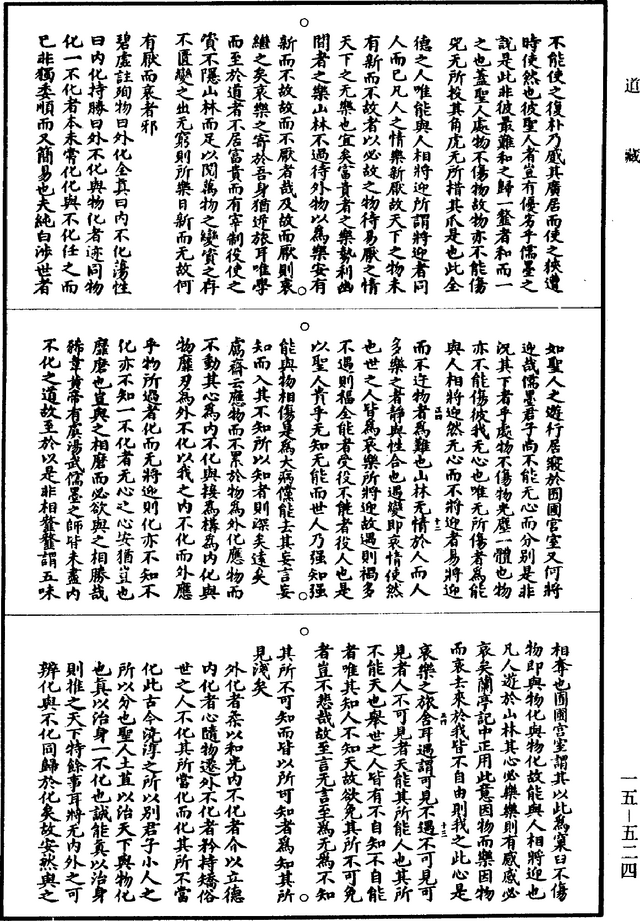 道藏
一五—五二四
不能使之復朴乃處其廣居而使之狹遭
時使然也彼聖人者豈有優劣乎儒墨之
說是此非彼最難和之歸一䪡者和而一
之也蓋聖人處物不傷物故物亦不能傷
兕无所投其角虎无所措其爪是也此全
德之人唯能與人相將迎所謂將迎者同
人而已凡人之情樂新厭故天下之物未
有新而不故者以必故之物待易厭之情
天下之无樂也宜矣富貴者之樂勢利幽
閒者之樂山林不過待外物以為樂安有
新而不故故而不厭者哉及故而厭則哀
繼之矣哀樂之寄於吾身猶逆旅耳唯學
而至於道者不居富貴而有宰制役使之
實不隱山林而足以閱萬物之變實之存
不匱變之出无窮則所樂日新而无故何
有厭而哀者邪
碧虛註殉物曰外化全真曰內不化蕩性
曰內化持勝曰外不化與物化者迹同物
化一不化者本未常化化與不化任之而
已非獨委順而又簡易也夫純白涉世者
如聖人之遊行居寢於囿圃宮室又何將
迎哉儒墨君子尚不能无心而分別是非
況其下者乎處物不傷物光塵一體也物
亦不能傷彼我无心也唯无所傷者為能
與人相將迎然无心而不將迎者易將迎
而不迕物者為難也山林无情於人而人
多樂之者靜與性合也遇變即哀情使然
也世之人皆為哀樂所將迎故遇則楬多
不遇則楅全能者受役不能者役人也是
以聖人貴乎无知无能而世人乃强知强
能與物相傷是為大病儻能去其妄言妄
知而入其不知所以知者則深矣遠矣
鬳齋云應物而不累於物為外化應物而
不動其心為內不化與接為構為內化與
物靡刃為外不化以我之內不化而外應
乎物所過者化而无將迎則化亦不知不
化亦不知一不化者无心之心安猶豈也
靡靡也豈與之相磨而必欲與之相勝哉
狶韋黃帝有虞湯武儒墨之師皆未盡內
不化之道故至於以是非相䪡䪡謂五味
相奪也囿圃宮室謂其以此為窠臼不傷
物即與物化與物化故能與人相將迎也
凡人遊於山林其心必樂樂則有感感必
哀矣蘭亭記中正用此意因物而樂因物
而哀去來於我皆不自由則我之此心是
哀樂之旅舍耳遇謂可見不遇不可見可
見者人不可見者天能其所能人也其所
不能天也舉世之人皆有不自知不自能
者唯其知人不知天故欲免其所不可免
者豈不悲哉故至言无言至為无為不知
其所不可知而皆以所可知者為知其所
見淺矣
外化者柔以和光內不化者介以立德
內化者心隨物遷外不化者矜持矯俗
世之人不化其所當化而化其所不當
化此古今澆淳之所以別君子小人之
所以分也聖人土苴以治天下與物化
也真以治身一不化也誠能真以治身
則推之天下特餘事耳將无內外之可
辨化與不化同歸於化矣故安然與之